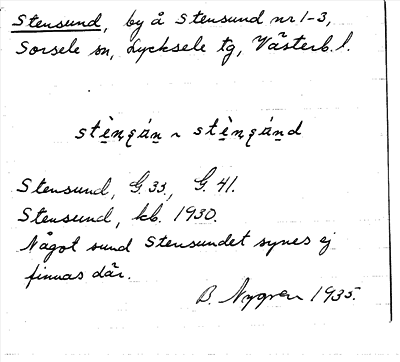 Stensund, by å Stensund nr 1-3,
Sorsele sn, Lycksele tg, Västerb. l.
Stensund, G. 33, G. 41.
Stensund, kb. 1930.
Något sund Stensundet synes ej
finnas där.
B. Nygren 1935.